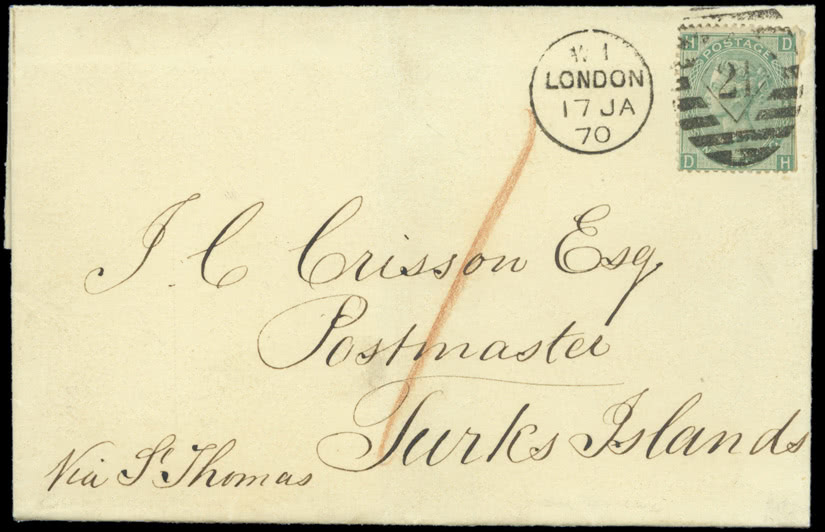 W 1
LONDON
17 JA
70
H D
POSTAGE
21
D H
J C Crisson Esq
Postmaster
Turks Islands
Via St Thomas